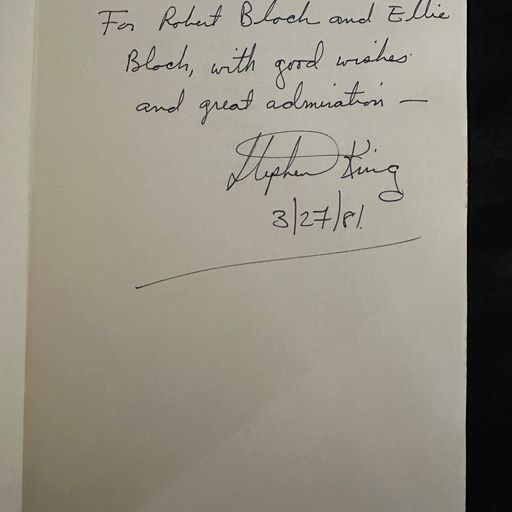 For Robert Bloch and Ellie
Bloch, with good wishes
and great admiration —
Stephen King
3/27/81.